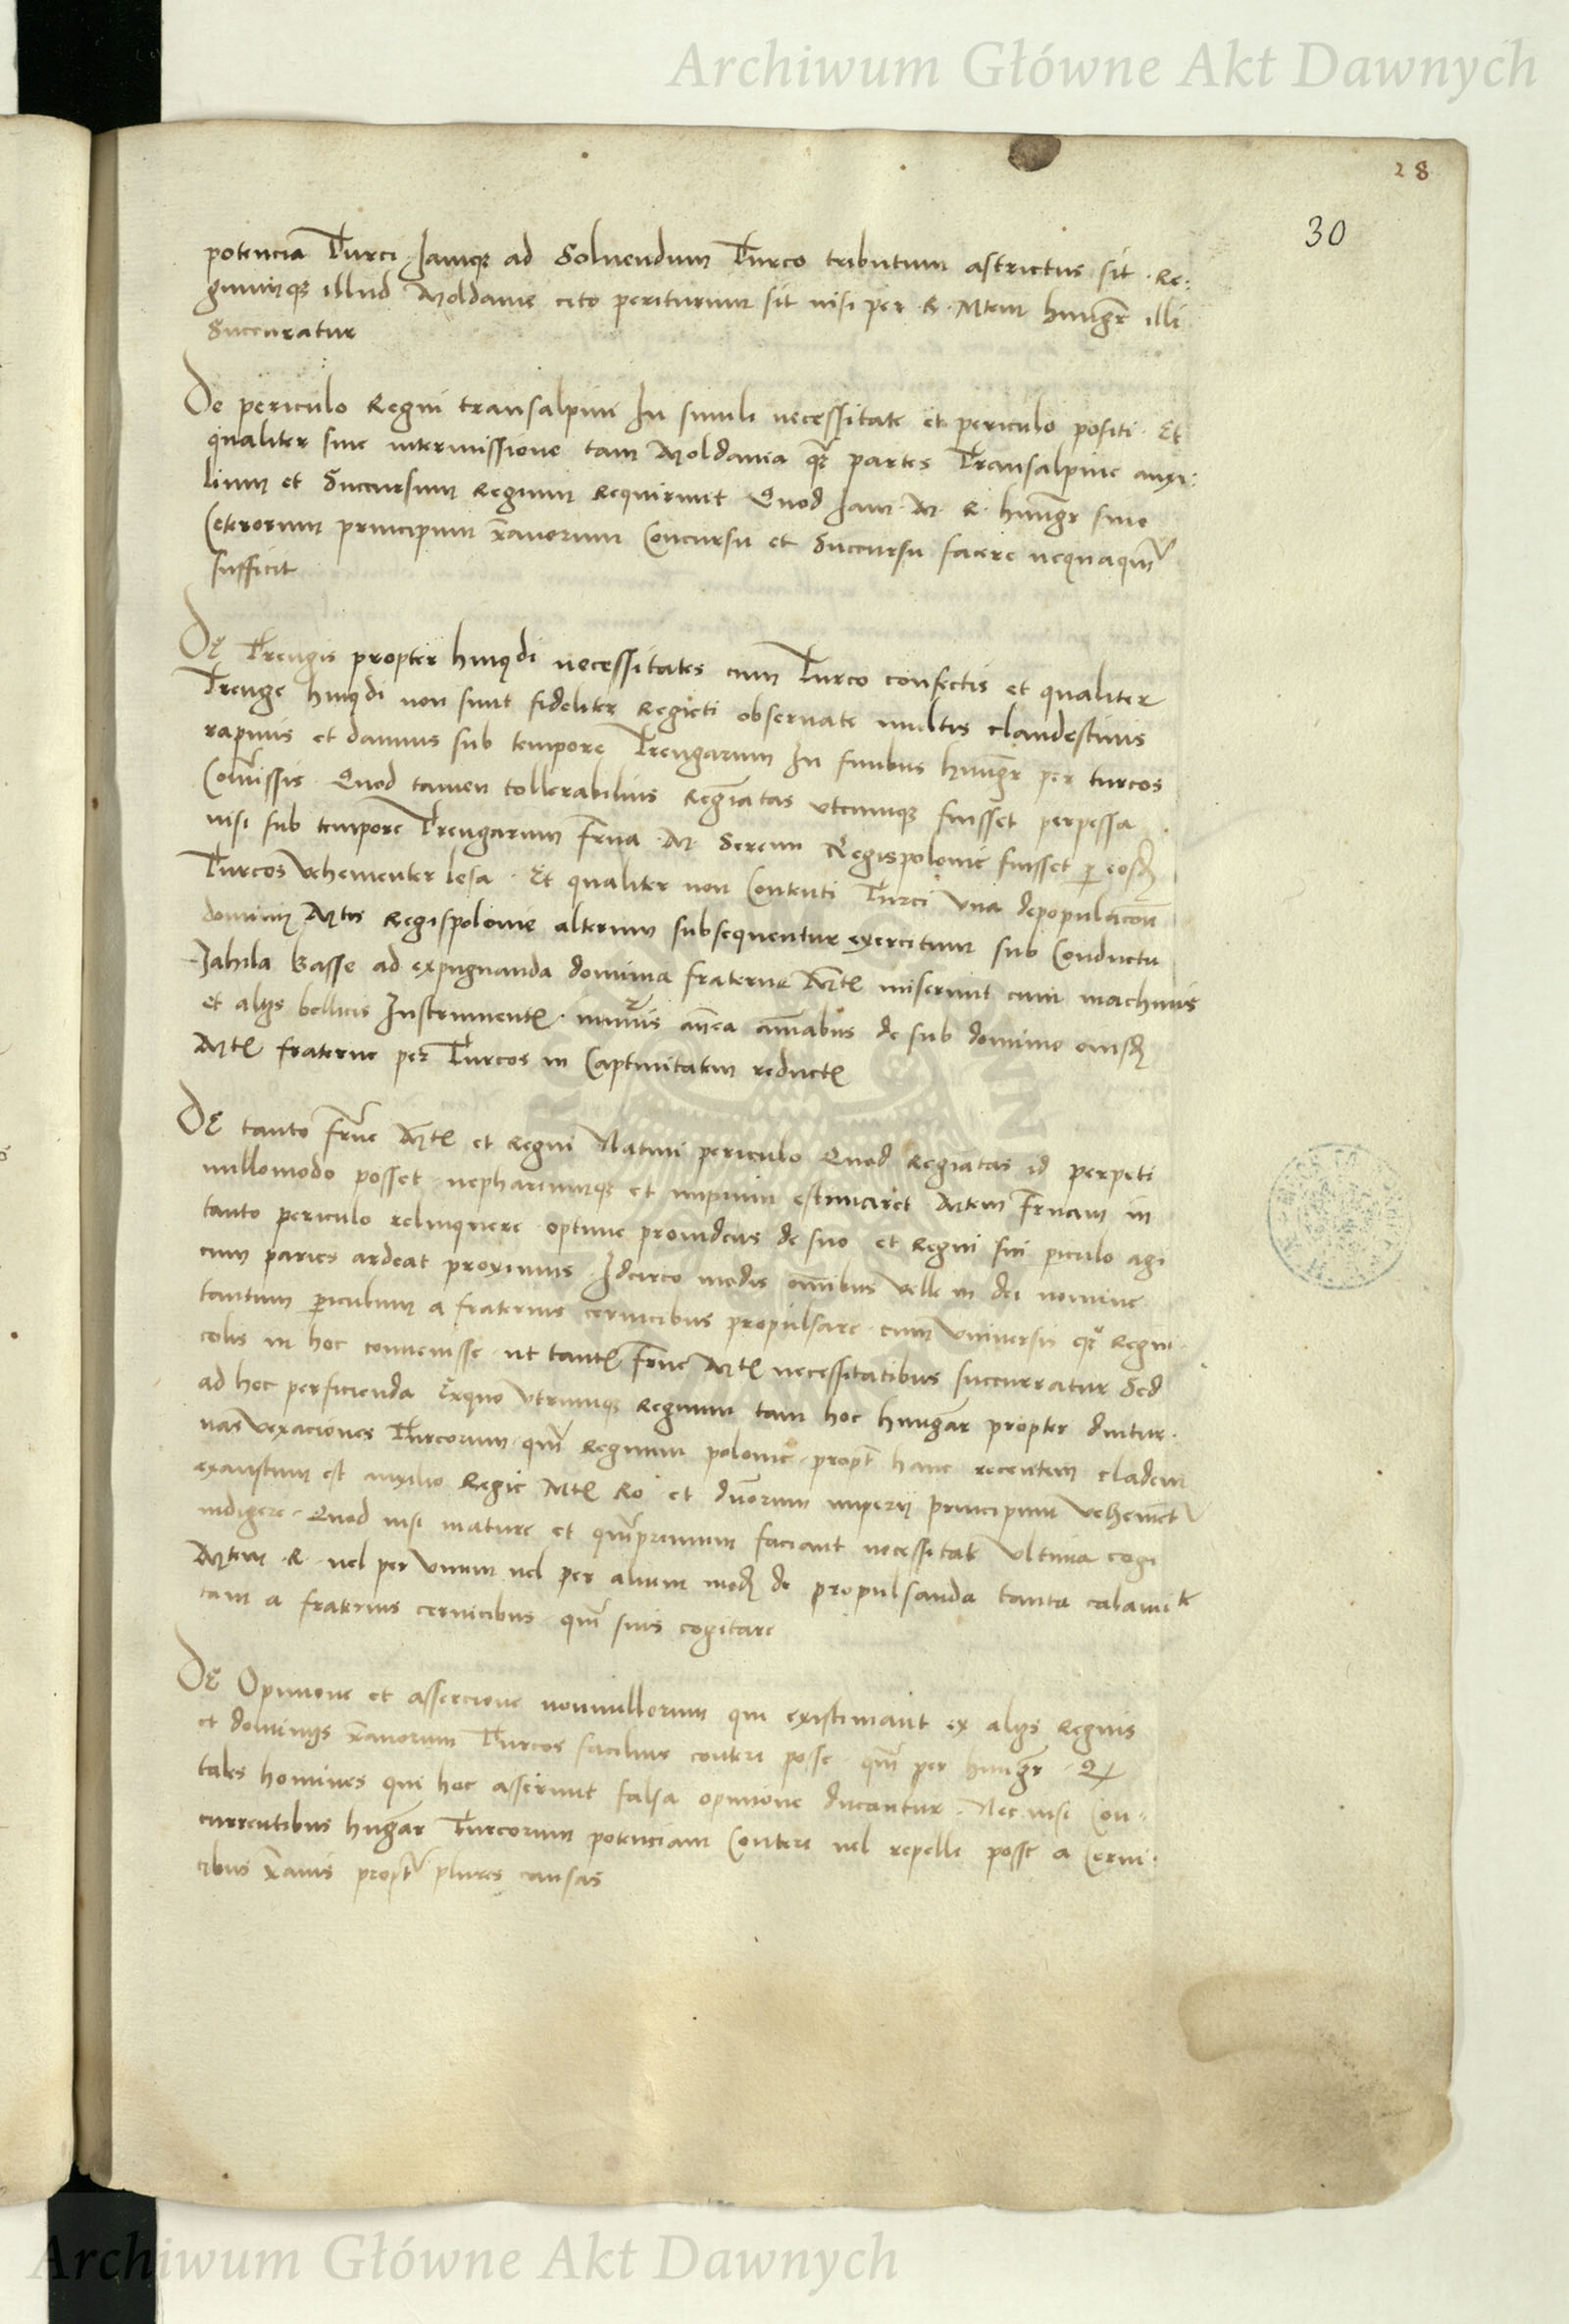 Archiwum Główne Akt Dawnych
28
30
potencia Turci Jamq3 ad Soluendum Turco tributum astrictus sit · Re:
gnumq3 illud Moldauie cito periturum sit nisi per R. Mtem hungr̄ illi
Succuratur
De periculo Regni transalpini In simili necessitate et periculo positi · Et
qualiter sine intermissione tam Moldauia q3 partes Transalpine auxi:
lium et Succursum Regium Requirunt Quod Jam · M · R · hungr̄ sine
Ceterorum principum x̄anorum Concursu et Succursu facere nequaqm̄
sufficit
De Treugis propter huiq̄di necessitates cum Turco confectis et qualiter
Treuge huiq̄di non sunt fideliter Regieti obseruate multis clandestinis
rapinis et damnis sub tempore Treugarum In finibus hungr̄ per turcos
Com̄issis · Quod tamen tollerabilius Regiatas vtcumq3 fuisset perpessa
nisi sub tempore Treugarum Frna · M · Sereni Regispolonie fuisset p̄ eosd̄
Turcos vehementer lesa · Et qualiter non Contenti Turci vna depopulacōn
dominij Mtis Regispolonie alterum subsequentur exercitum sub Conductu
Jahila Basse ad expugnanda dominia fraterne Mt̄ miserunt cum machinis
et alijs bellicis Instrument̄ · an̄ea an̄abus de sub dominio eiusd̄
Mt̄ fraterne per Turcos in Captiuitatem reduct̄
De tanto frn̄e Mt̄ et Regni Natiui periculo Quod Regiatas id perpeti
nullomodo posset · nephariumq3 et impium estimaret Mtem Frnam in
tanto periculo relinquere · optime prouidens de suo et Regni sui piculo agi
cum paries ardeat proximus · Idcirco modis om̄ibus velle in dei nomine
tantum p̄iculum a fraternis ceruicibus propulsare · cum vniuersis Regni·
colis in hoc conuenisse · ut tant̄ Frne Mt̄ necessitatibus succurratur Sed
ad hec perficienda Exquo vtrumq3 Regnum tam hoc hungar̄ propter diutur·
nas vexaciones Turcorum · qm̄ Regnum polonie · propt̄ hanc recentem cladem
exaustum est auxilio Regie Mt̄ Ro et du̅orum imperij principum vehement̄
indigere · Quod nisi mature et qm̄primum faciant necessitate vltima cogi
Mtem · R · uel per vnum uel per alium mod̄ de propulsanda tanta calamite
tam a fraternis ceruicibus · qm̄ suis cogitare
De Opinione et assercione nonnullorum qui existimant ex alijs Regnis
et dominijs x̄anorum Turcos facilius conteri posse · qm̄ per hungr̄ · Q
tales homines qui hoc asserunt falsa opinione ducantur · Nec nisi Con·
currentibus hugar̄ Turcorum potenciam Conteri uel repelli posse a Cerui·
cibus x̄anis propt̄ plures causas
Archiwum Główne Akt Dawnych